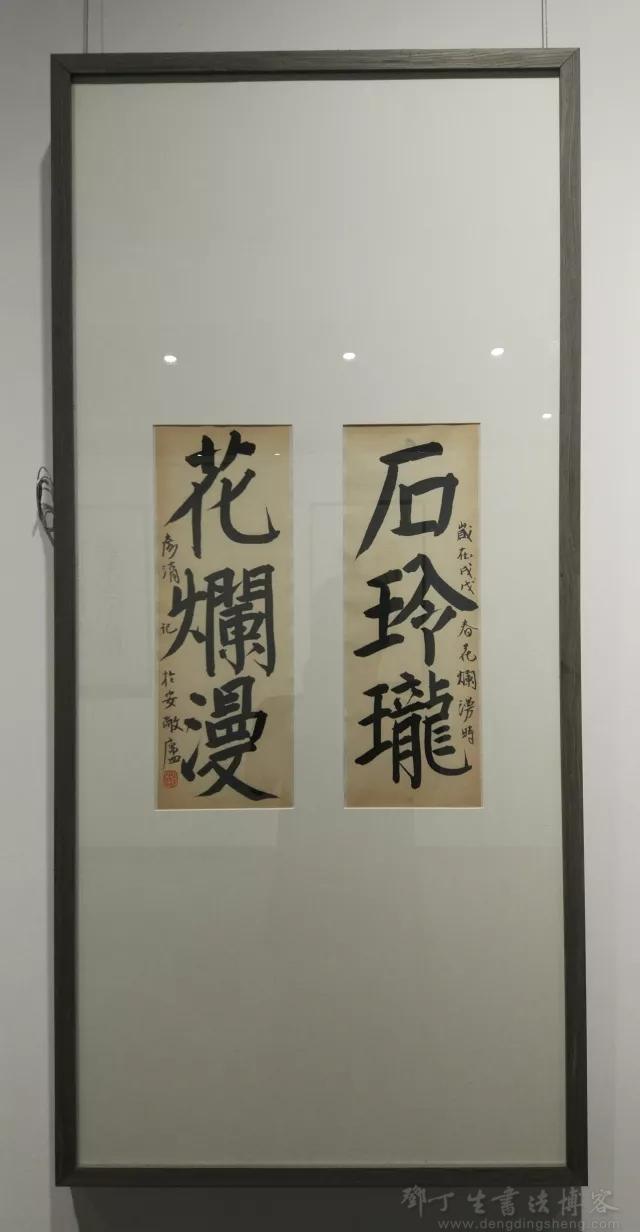 石玲瓏
歲在戊戌春花爛漫時
花爛漫
清記於安敢廬
鄧丁生書法博客
www.dengdingsheng.com